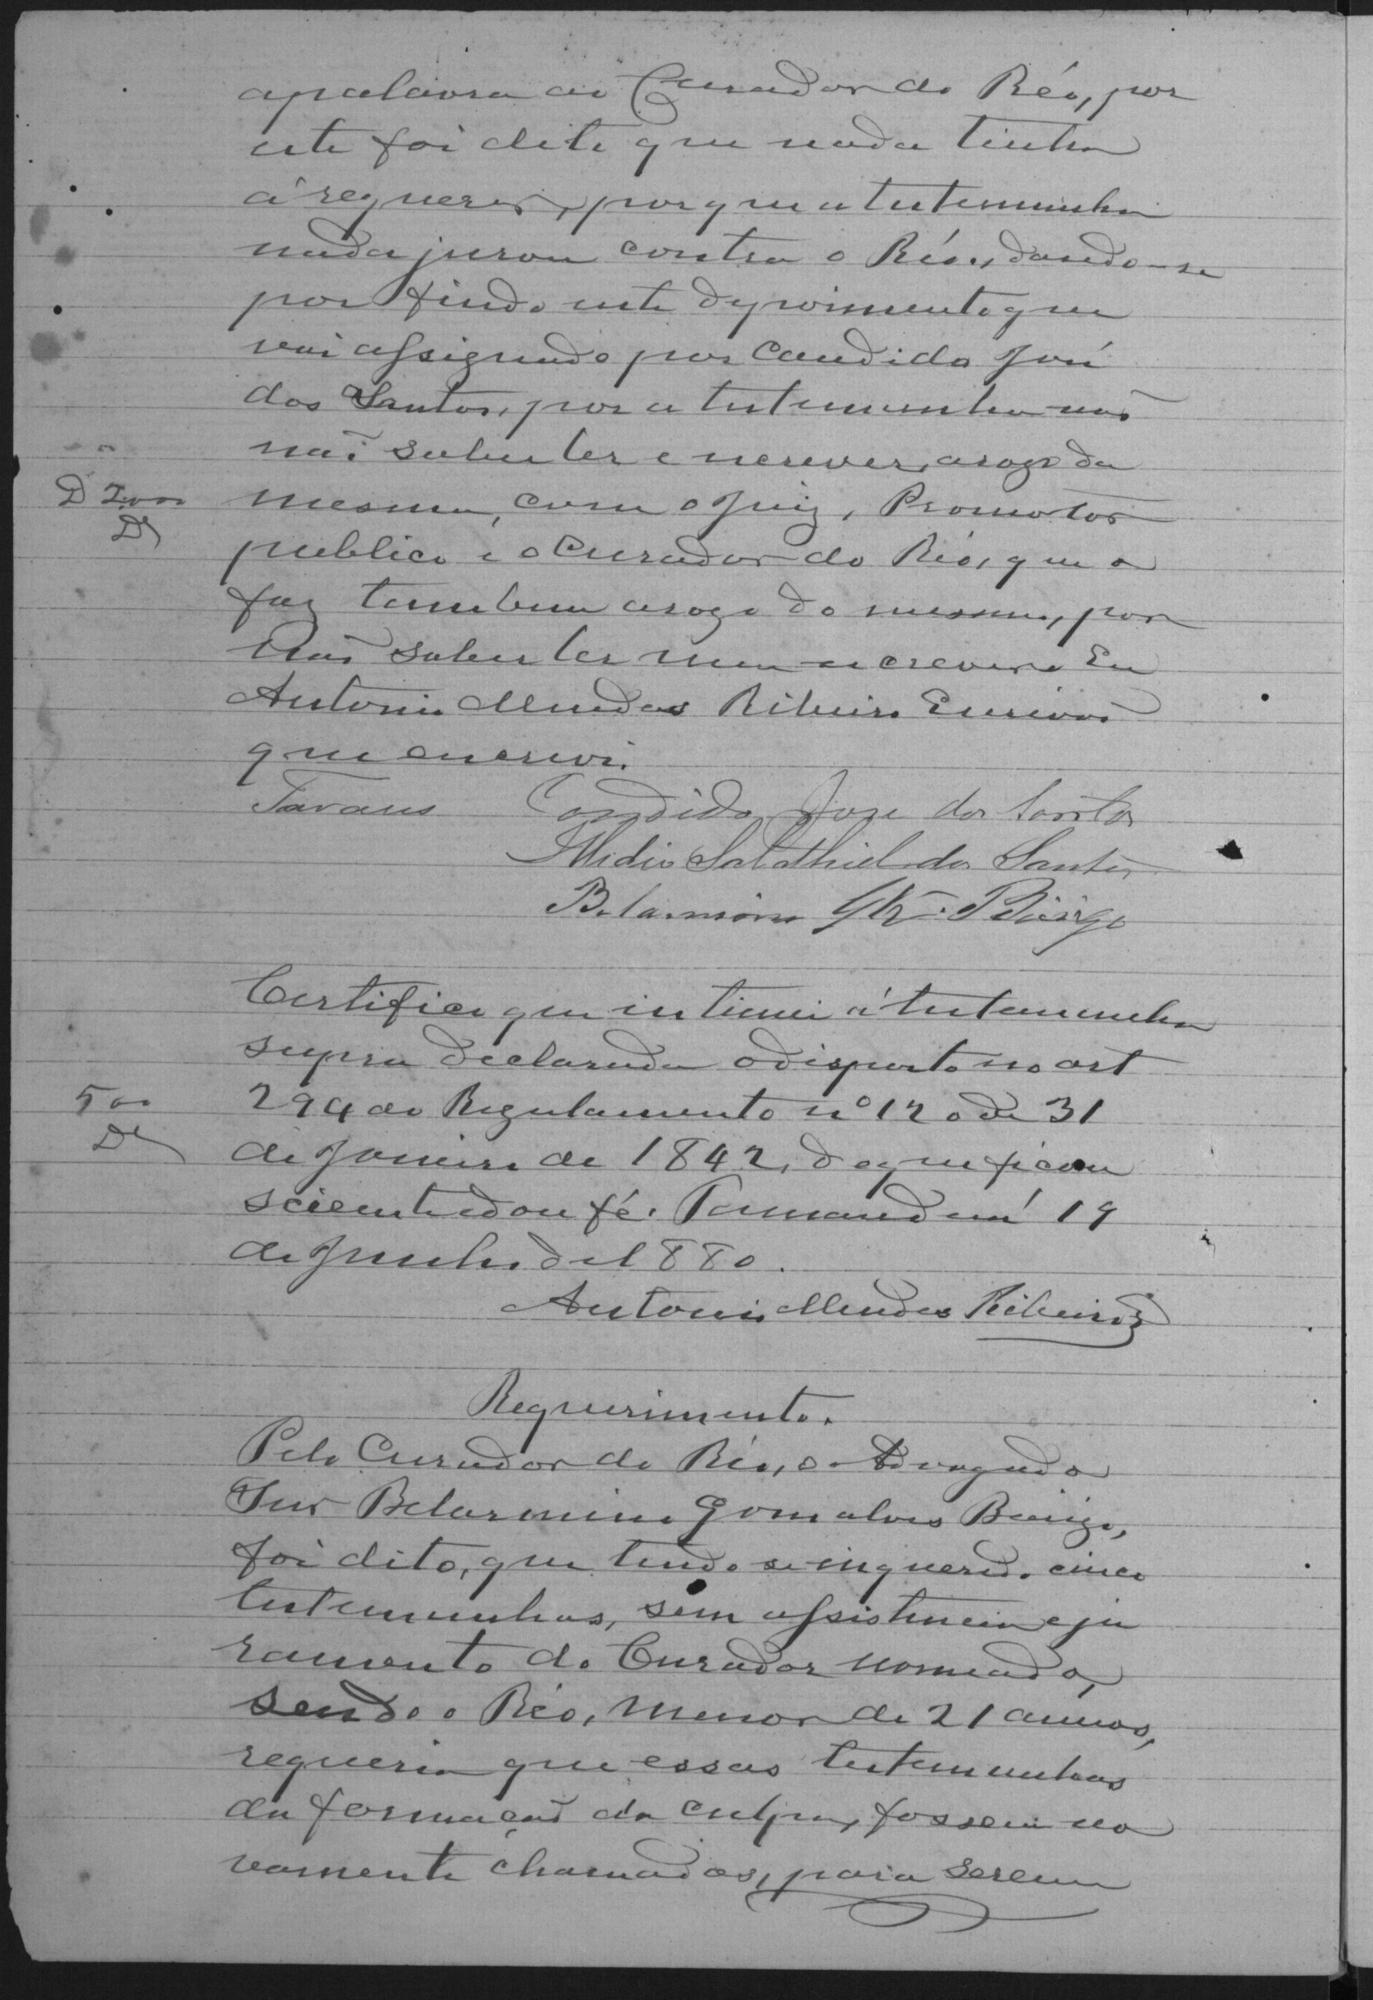 apalavra ao Curador do Réo, por
este foi dito que nada tinha
á requerer, porque a testemunha
nada jurou contra o Réo, dando-se
por findo este depoimento que
vai assignado por Candido José
dos Santos, por a testemunha não
não saber ler e escrever, arogo da
mesma, com o Juiz, Promotor
publico e o Curador do Réo, que o
faz tambem arogo do mesmo, por
não saber ler nem escrever. Eu
Antonio Mendes Ribeiro Escrivão
que escrevi.
Tavares Candido Jose dos Santos
Salathiel dos Santos
Belarmino Glz.
Certifico que intimei á testemunha
supra declarada o disposto no art
294 do Regulamento nº 120 de 31
de Janeiro de 1842, do que ficou
sciente dou fé. Tamandaré 19
500
de Junho de 1880.
Antonio Mendes Ribeiro
Requerimento.
Pelo Curador do Réo, o Advogado
Belarmino Gonsalves
foi dito, que tendo se inquerido cinco
testemunhas, sem assistencia e ju
ramento do Curador nomeado,
sendo o Réo, menor de 21 annos,
requeria que essas testemunhas
da formação da culpa, fossem no
vamente chamadas, para serem